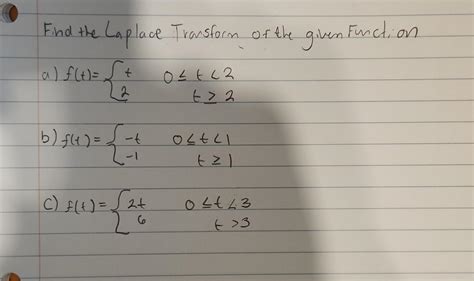 Find the Laplace Transform of the given Function
a) f(t) = { t 0 ≤ t < 2
2 t ≥ 2
b) f(t) = { -t 0 ≤ t < 1
-1 t ≥ 1
c) f(t) = { 2t 0 ≤ t < 3
6 t > 3